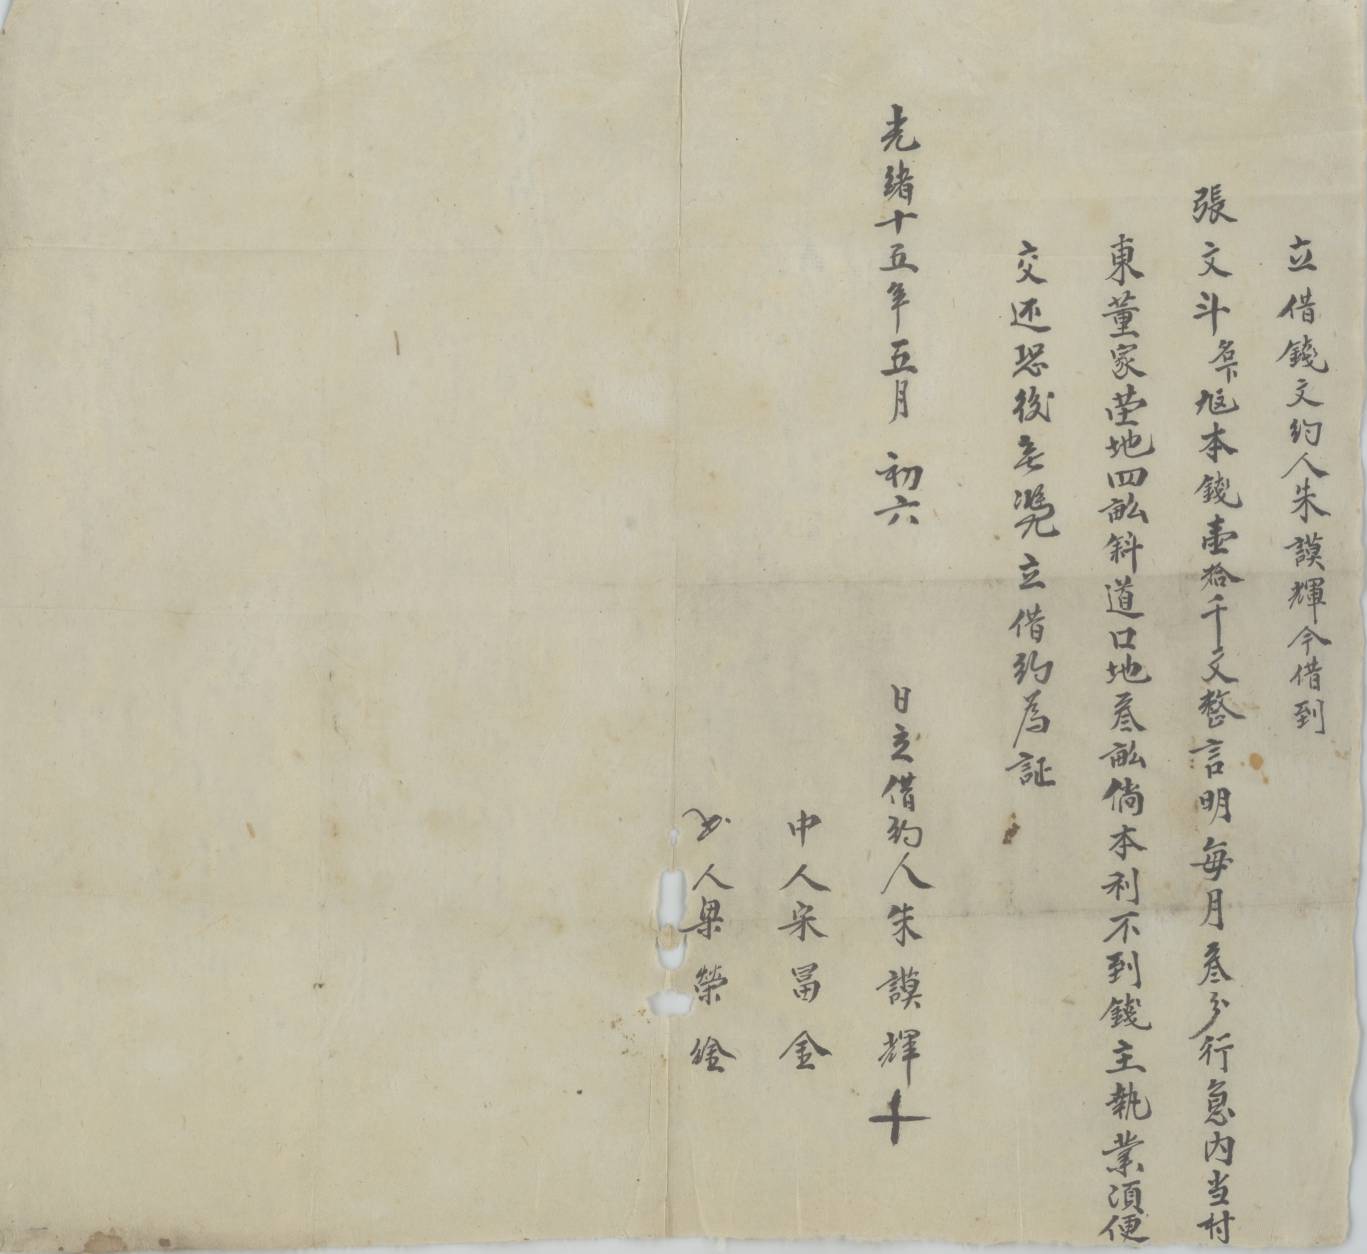 立借錢文約人朱謨輝今借到
張文斗名下旭本錢壹拾千文整言明每月叁分行息内当村
東董家茔地四畝斜道口地叁畝倘本利不到錢主執業湏便
交还恐後無凴立借約為証
光緒十五年五月初六日立借約人朱謨輝十
中人宋冨金
人梁榮